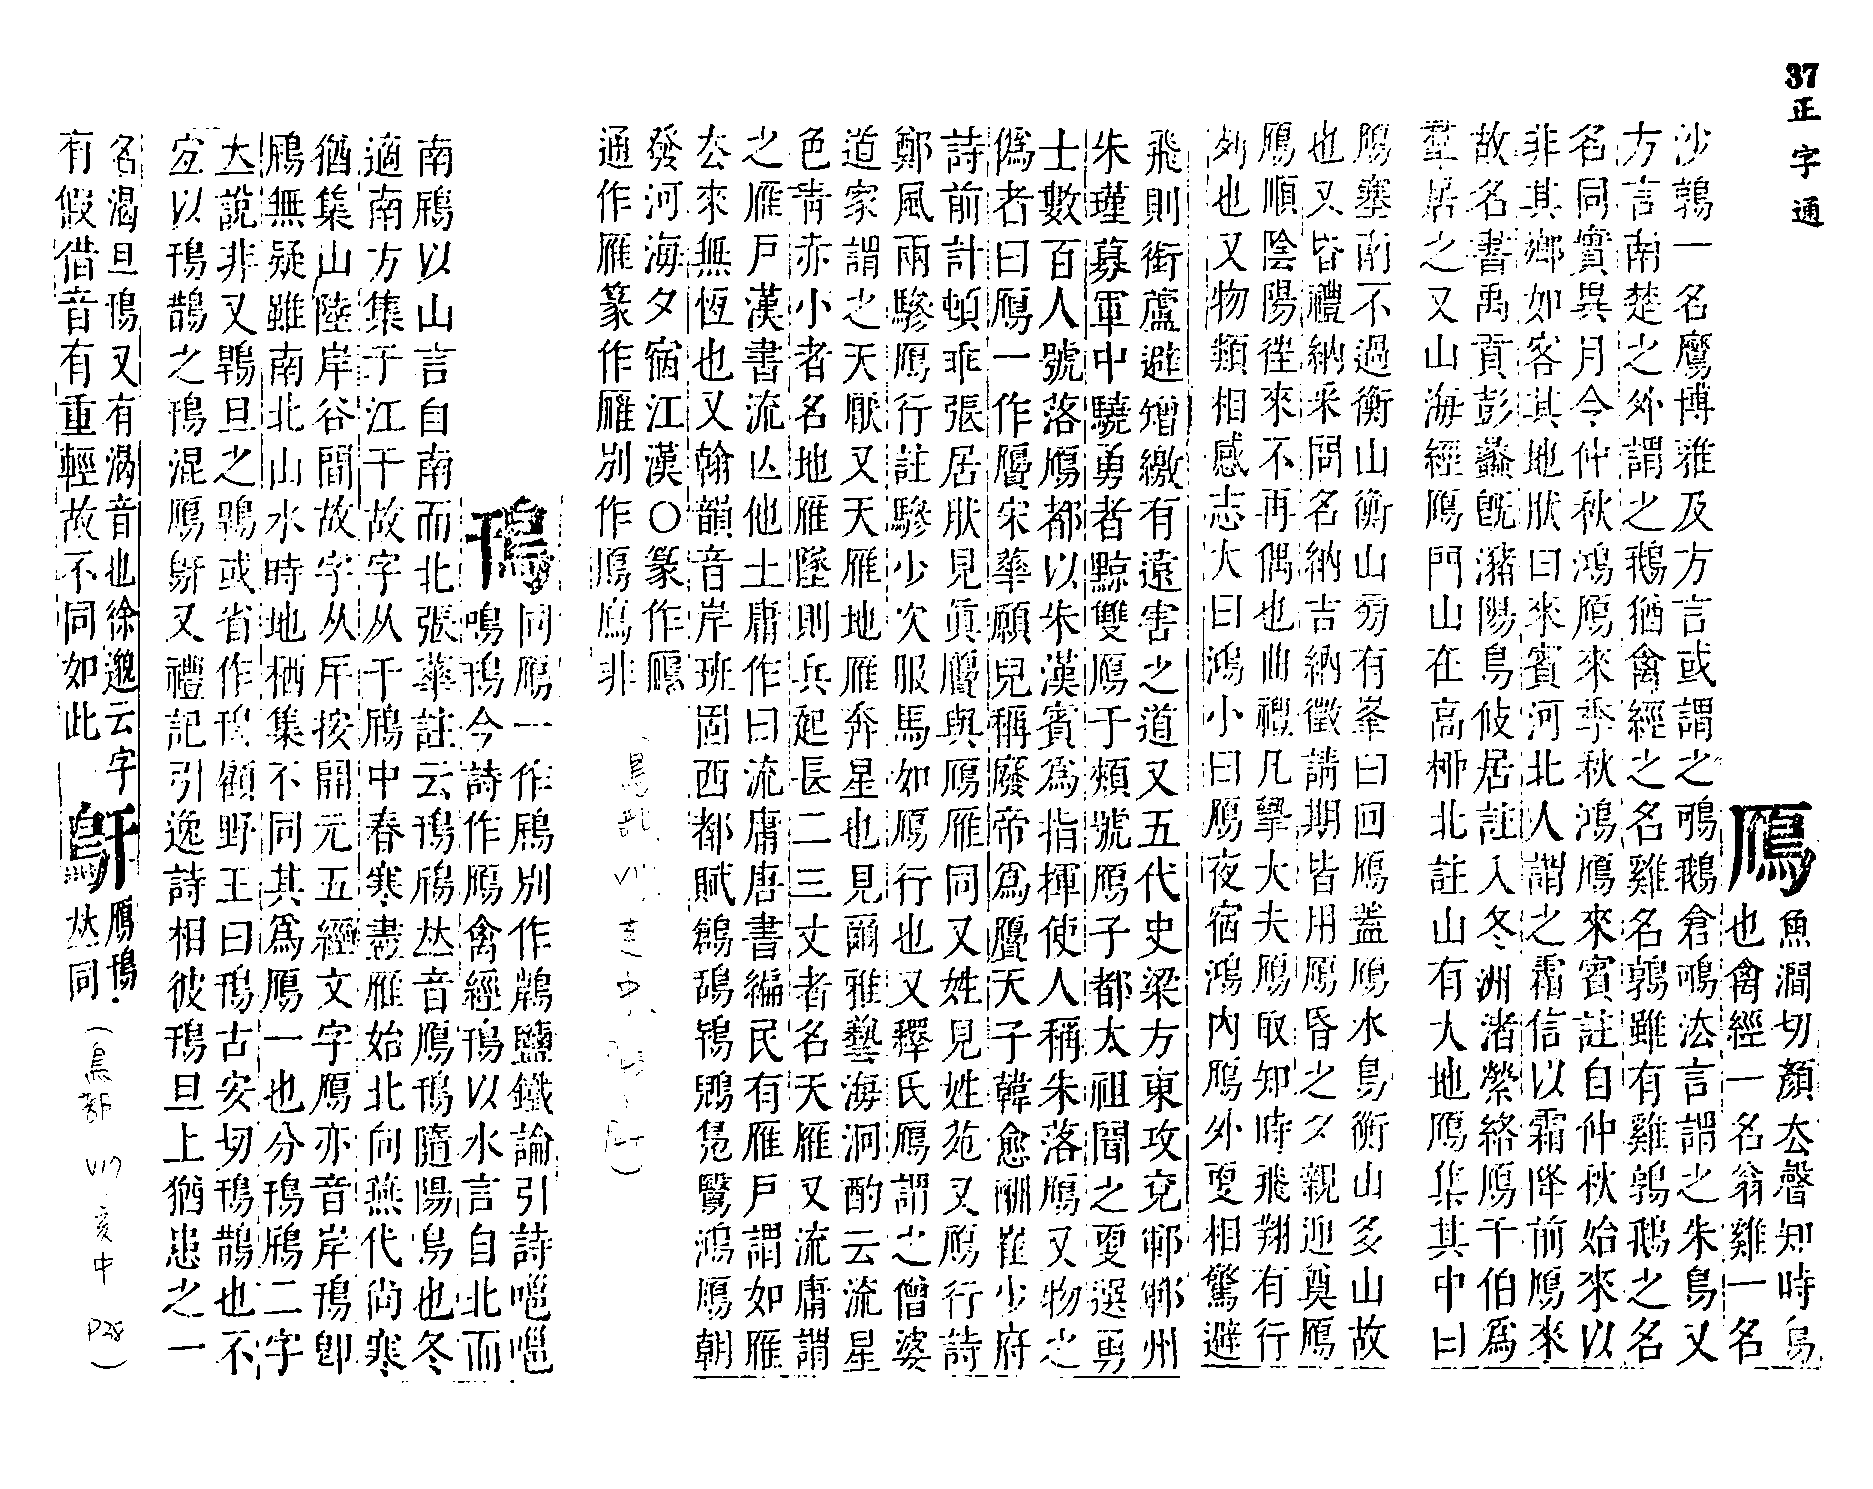 37正字通
鴈 魚澗切顏去聲知時鳥
也禽經一名翁雞一名
沙鶉一名鴈博雅及方言或謂之鴚鵝倉鴚法言謂之朱鳥又
方言南楚之外謂之鵝猶禽經之名雞名鶉雖有雞鶉鵝之名
名同實異月令仲秋鴻鴈來季秋鴻鴈來賓註自仲秋始來以
非其鄉如客其地狀曰來賓河北人謂之霜信以霜降前鴈來
故名書禹貢彭蠡旣瀦陽鳥攸居註入冬洲渚縈絡鴈千伯爲
羣居之又山海經鴈門山在高柳北註山有大地鴈集其中曰
鴈塞南不過衡山衡山旁有峯曰回鴈蓋鴈水鳥衡山多山故
也又皆禮納采問名納吉納徵請期皆用鴈昏之夕親迎奠鴈
鴈順陰陽徃來不再偶也曲禮凡摯大夫鴈取知時飛翔有行
列也又物類相感志大曰鴻小曰鴈夜宿鴻內鴈外更相驚避
飛則銜蘆避矰繳有遠害之道又五代史梁方東攻兗鄆鄆州
朱瑾募軍中驍勇者黥雙鴈于頰號鴈子都太祖聞之更選勇
士數百人號落鴈都以朱漢賓爲指揮使人稱朱落鴈又物之
僞者曰鴈一作贗宋華願兒稱廢帝爲贗天子韓愈酬崔少府
詩前計頓乖張居狀見眞贗與鴈雁同又姓見姓苑又鴈行詩
鄭風兩驂鴈行註驂少次服馬如鴈行也又釋氏鴈謂之僧婆
道家謂之天厭又天雁地雁奔星也見爾雅藝海泂酌云流星
色靑赤小者名地雁墜則兵起長二三丈者名天雁又流庸謂
之雁戶漢書流亾他土庸作曰流庸唐書編民有雁戶謂如雁
去來無恆也又翰韻音岸班固西都賦鶬鴰鴇鶂鳧鷖鴻鴈朝
發河海夕宿江漢○篆作鴈
通作雁篆作雁別作鴈鳫非
鳱 同鴈一作鳫別作鷼鹽鐵論引詩嗈嗈
鳴鳱今詩作鴈禽經鳱以水言自北而
南鳫以山言自南而北張華註云鳱鳫𠀤音鴈鳱隨陽鳥也冬
適南方集于江干故字从干鳫中春寒盡雁始北向燕代尚寒
猶集山陸岸谷間故字从厈按開元五經文字鴈亦音岸鳱卽
鳫無疑雖南北山水時地栖集不同其爲鴈一也分鳱鳫二字
太說非又鶡旦之鶡或省作鳱顧野王曰鳱古安切鳱鵲也不
宜以鳱鵲之鳱混鴈鴚又禮記引逸詩相彼鳱旦上猶患之一
名渴旦鳱又有渴音也徐邈云字
有假借音有重輕故不同如此 鳱 鴈鳱
𠀤同
(鳥部 VII·亥中 P28)